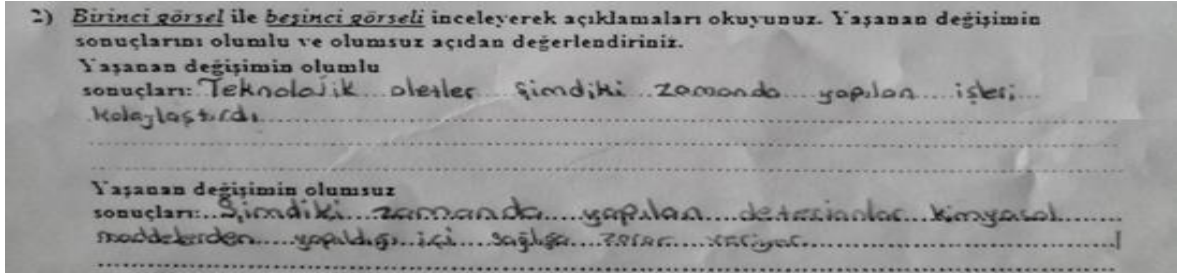 2) Birinci görsel ile beşinci görseli inceleyerek açıklamaları okuyunuz. Yaşanan değişimin
sonuçlarını olumlu ve olumsuz açıdan değerlendiriniz.
Yaşanan değişimin olumlu
sonuçları: Teknolojik aletler şimdiki zamanda yapılan işleri
kolaylaştırdı
Yaşanan değişimin olumsuz
sonuçları: Şimdiki zamanda yapılan deterjanlar kimyasal
maddelerden yapıldığı içi sağlığa zarar veriyor.